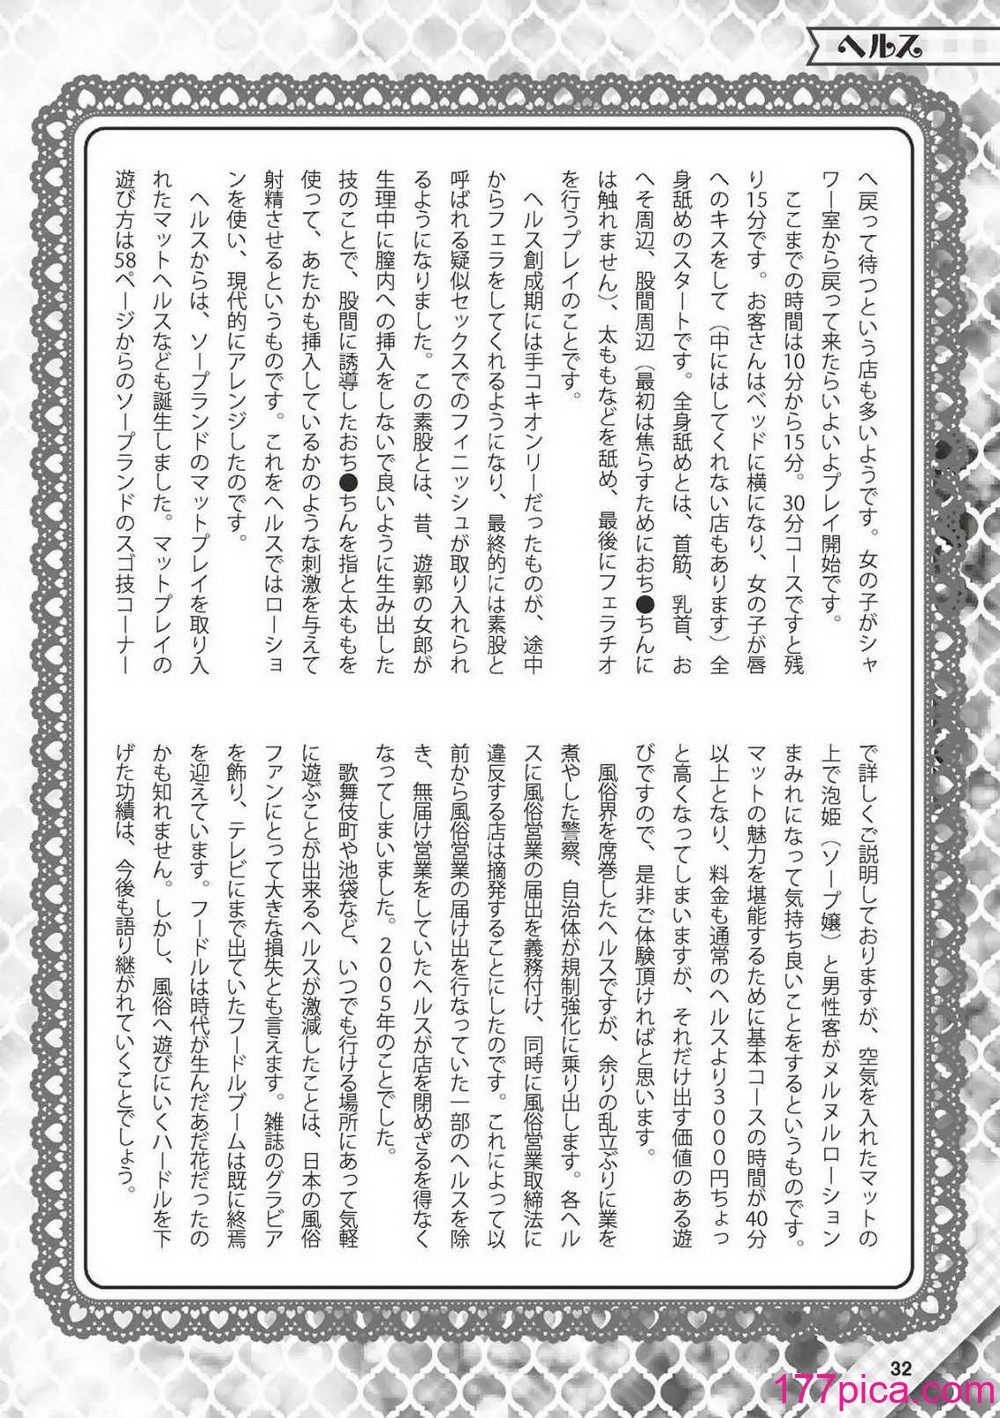 ヘルス
へ戻って待つという店も多いようです。女の子がシャ
ワー室から戻って来たらいよいよプレイ開始です。
ここまでの時間は10分から15分。30分コースですと残
り15分です。お客さんはベッドに横になり、女の子が唇
へのキスをして（中にはしてくれない店もあります）全
身舐めのスタートです。全身舐めとは、首筋、乳首、お
へそ周辺、股間周辺（最初は焦らすためにおち●ちんに
は触れません）、太ももなどを舐め、最後にフェラチオ
を行うプレイのことです。
ヘルス創成期には手コキオンリーだったものが、途中
からフェラをしてくれるようになり、最終的には素股と
呼ばれる疑似セックスでのフィニッシュが取り入れられ
るようになりました。この素股とは、昔、遊郭の女郎が
生理中に膣内への挿入をしないで良いように生み出した
技のことで、股間に誘導したおち●ちんを指と太ももを
使って、あたかも挿入しているかのような刺激を与えて
射精させるというものです。これをヘルスではローショ
ンを使い、現代的にアレンジしたのです。
ヘルスからは、ソープランドのマットプレイを取り入
れたマットヘルスなども誕生しました。マットプレイの
遊び方は58ページからのソープランドのスゴ技コーナー
で詳しくご説明しておりますが、空気を入れたマットの
上で泡姫（ソープ嬢）と男性客がヌルヌルローション
まみれになって気持ち良いことをするというものです。
マットの魅力を堪能するために基本コースの時間が40分
以上となり、料金も通常のヘルスより3000円ちょっ
と高くなってしまいますが、それだけ出す価値のある遊
びですので、是非ご体験頂ければと思います。
風俗界を席巻したヘルスですが、余りの乱立ぶりに業を
煮やした警察、自治体が規制強化に乗り出します。各ヘル
スに風俗営業の届出を義務付け、同時に風俗営業取締法に
違反する店は摘発することにしたのです。これによって以
前から風俗営業の届け出を行なっていた一部のヘルスを除
き、無届け営業をしていたヘルスが店を閉めざるを得なく
なってしまいました。2005年のことでした。
歌舞伎町や池袋など、いつでも行ける場所にあって気軽
に遊ぶことが出来るヘルスが激減したことは、日本の風俗
ファンにとって大きな損失とも言えます。雑誌のグラビア
を飾り、テレビにまで出ていたフードルブームは既に終焉
を迎えています。フードルは時代が生んだあだ花だったの
かも知れません。しかし、風俗へ遊びにいくハードルを下
げた功績は、今後も語り継がれていくことでしょう。
32
177pica.com